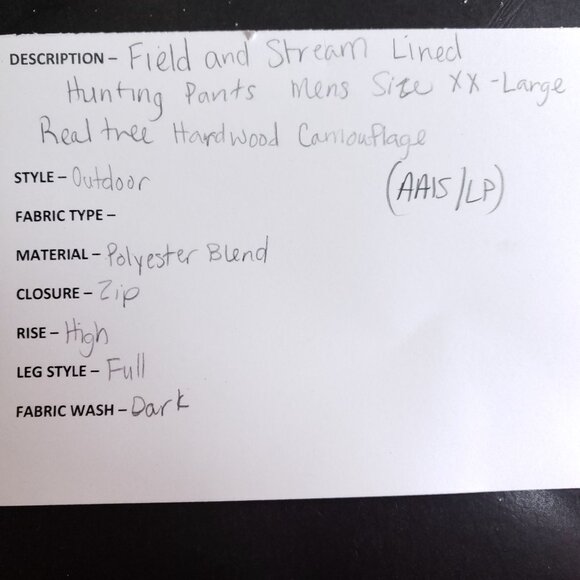 DESCRIPTION – Field and Stream Lined
Hunting Pants Mens Size XX-Large
Realtree Hardwood Camouflage
STYLE – Outdoor
(AA15/LP)
FABRIC TYPE –
MATERIAL – Polyester Blend
CLOSURE – Zip
RISE – High
LEG STYLE – Full
FABRIC WASH – Dark